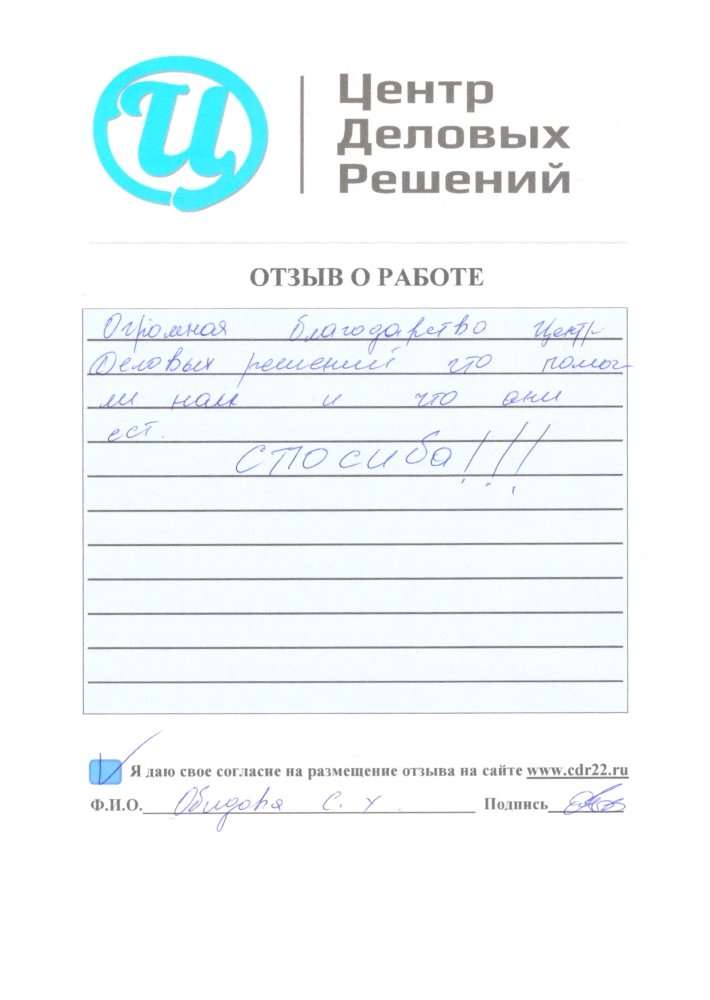 Ц
Центр
Деловых
Решений
ОТЗЫВ О РАБОТЕ
Огромная благодарство Центр
Деловых решений что помог-
ли нам и что они
ест.
спосиба!!!
Я даю свое согласие на размещение отзыва на сайте www.cdr22.ru
Ф.И.О. Обидова С. У. Подпись